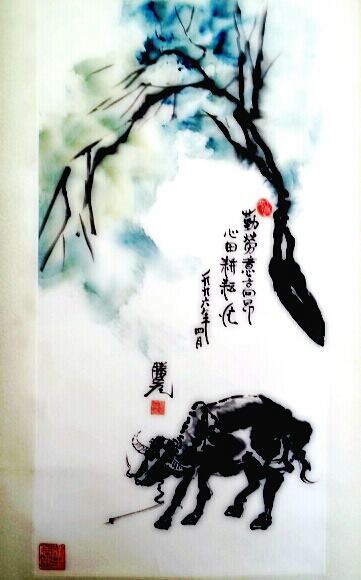 勤勞意高昂
心田耕耘忙
一九九六年四月